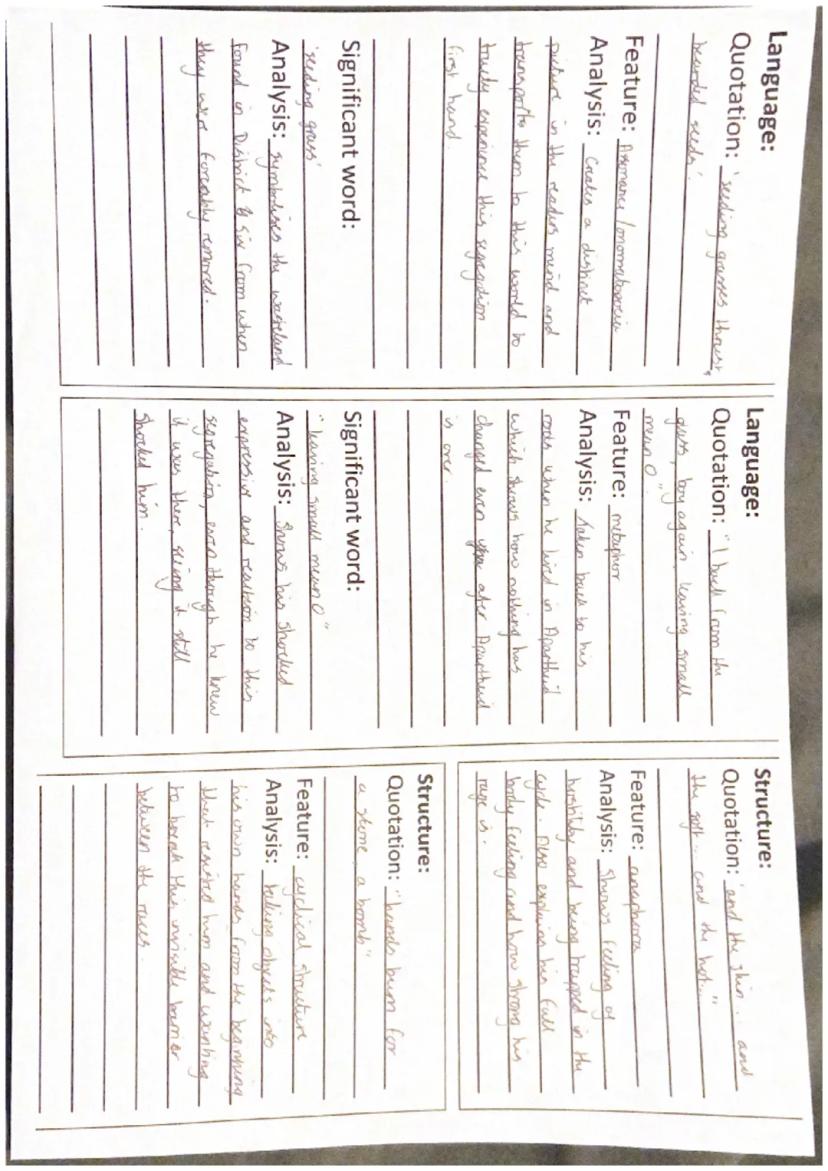 Language:
Quotation: 'seeding grasses thrust,
bearded seeds'.
Feature: Assonance / onomatopoeia
Analysis: Creates a distinct
picture in the readers mind and
transports them to this world to
truely experience this segregation
first hand.
Significant word:
'seeding grass'
Analysis: symbolises the wasteland
found in District 6 six from when
they were forceably removed.
Language:
Quotation: "I back from the
glass, boy again, leaving small
mean O"
Feature: metaphor
Analysis: taken back to his
roots when he lived in Apartheid
which shows how nothing has
changed even after Apartheid
is over.
Significant word:
"leaving small mean O"
Analysis: Shows his shocked
expression and reaction to this
segregation, even though he knew
it was there, seeing it still
shocked him.
Structure:
Quotation: 'and the skin... and
the soft... and the hot..."
Feature: anaphora
Analysis: Shows feeling of
hostility and being trapped in the
cycle. Also explains his full
body feeling and how strong his
rage is.
Structure:
Quotation: "hands burn for
a stone, a bomb"
Feature: cyclical structure
Analysis: taking objects into
his own hands from the beginning
that resisted him and wanting
to break this invisible barrier
between the races.